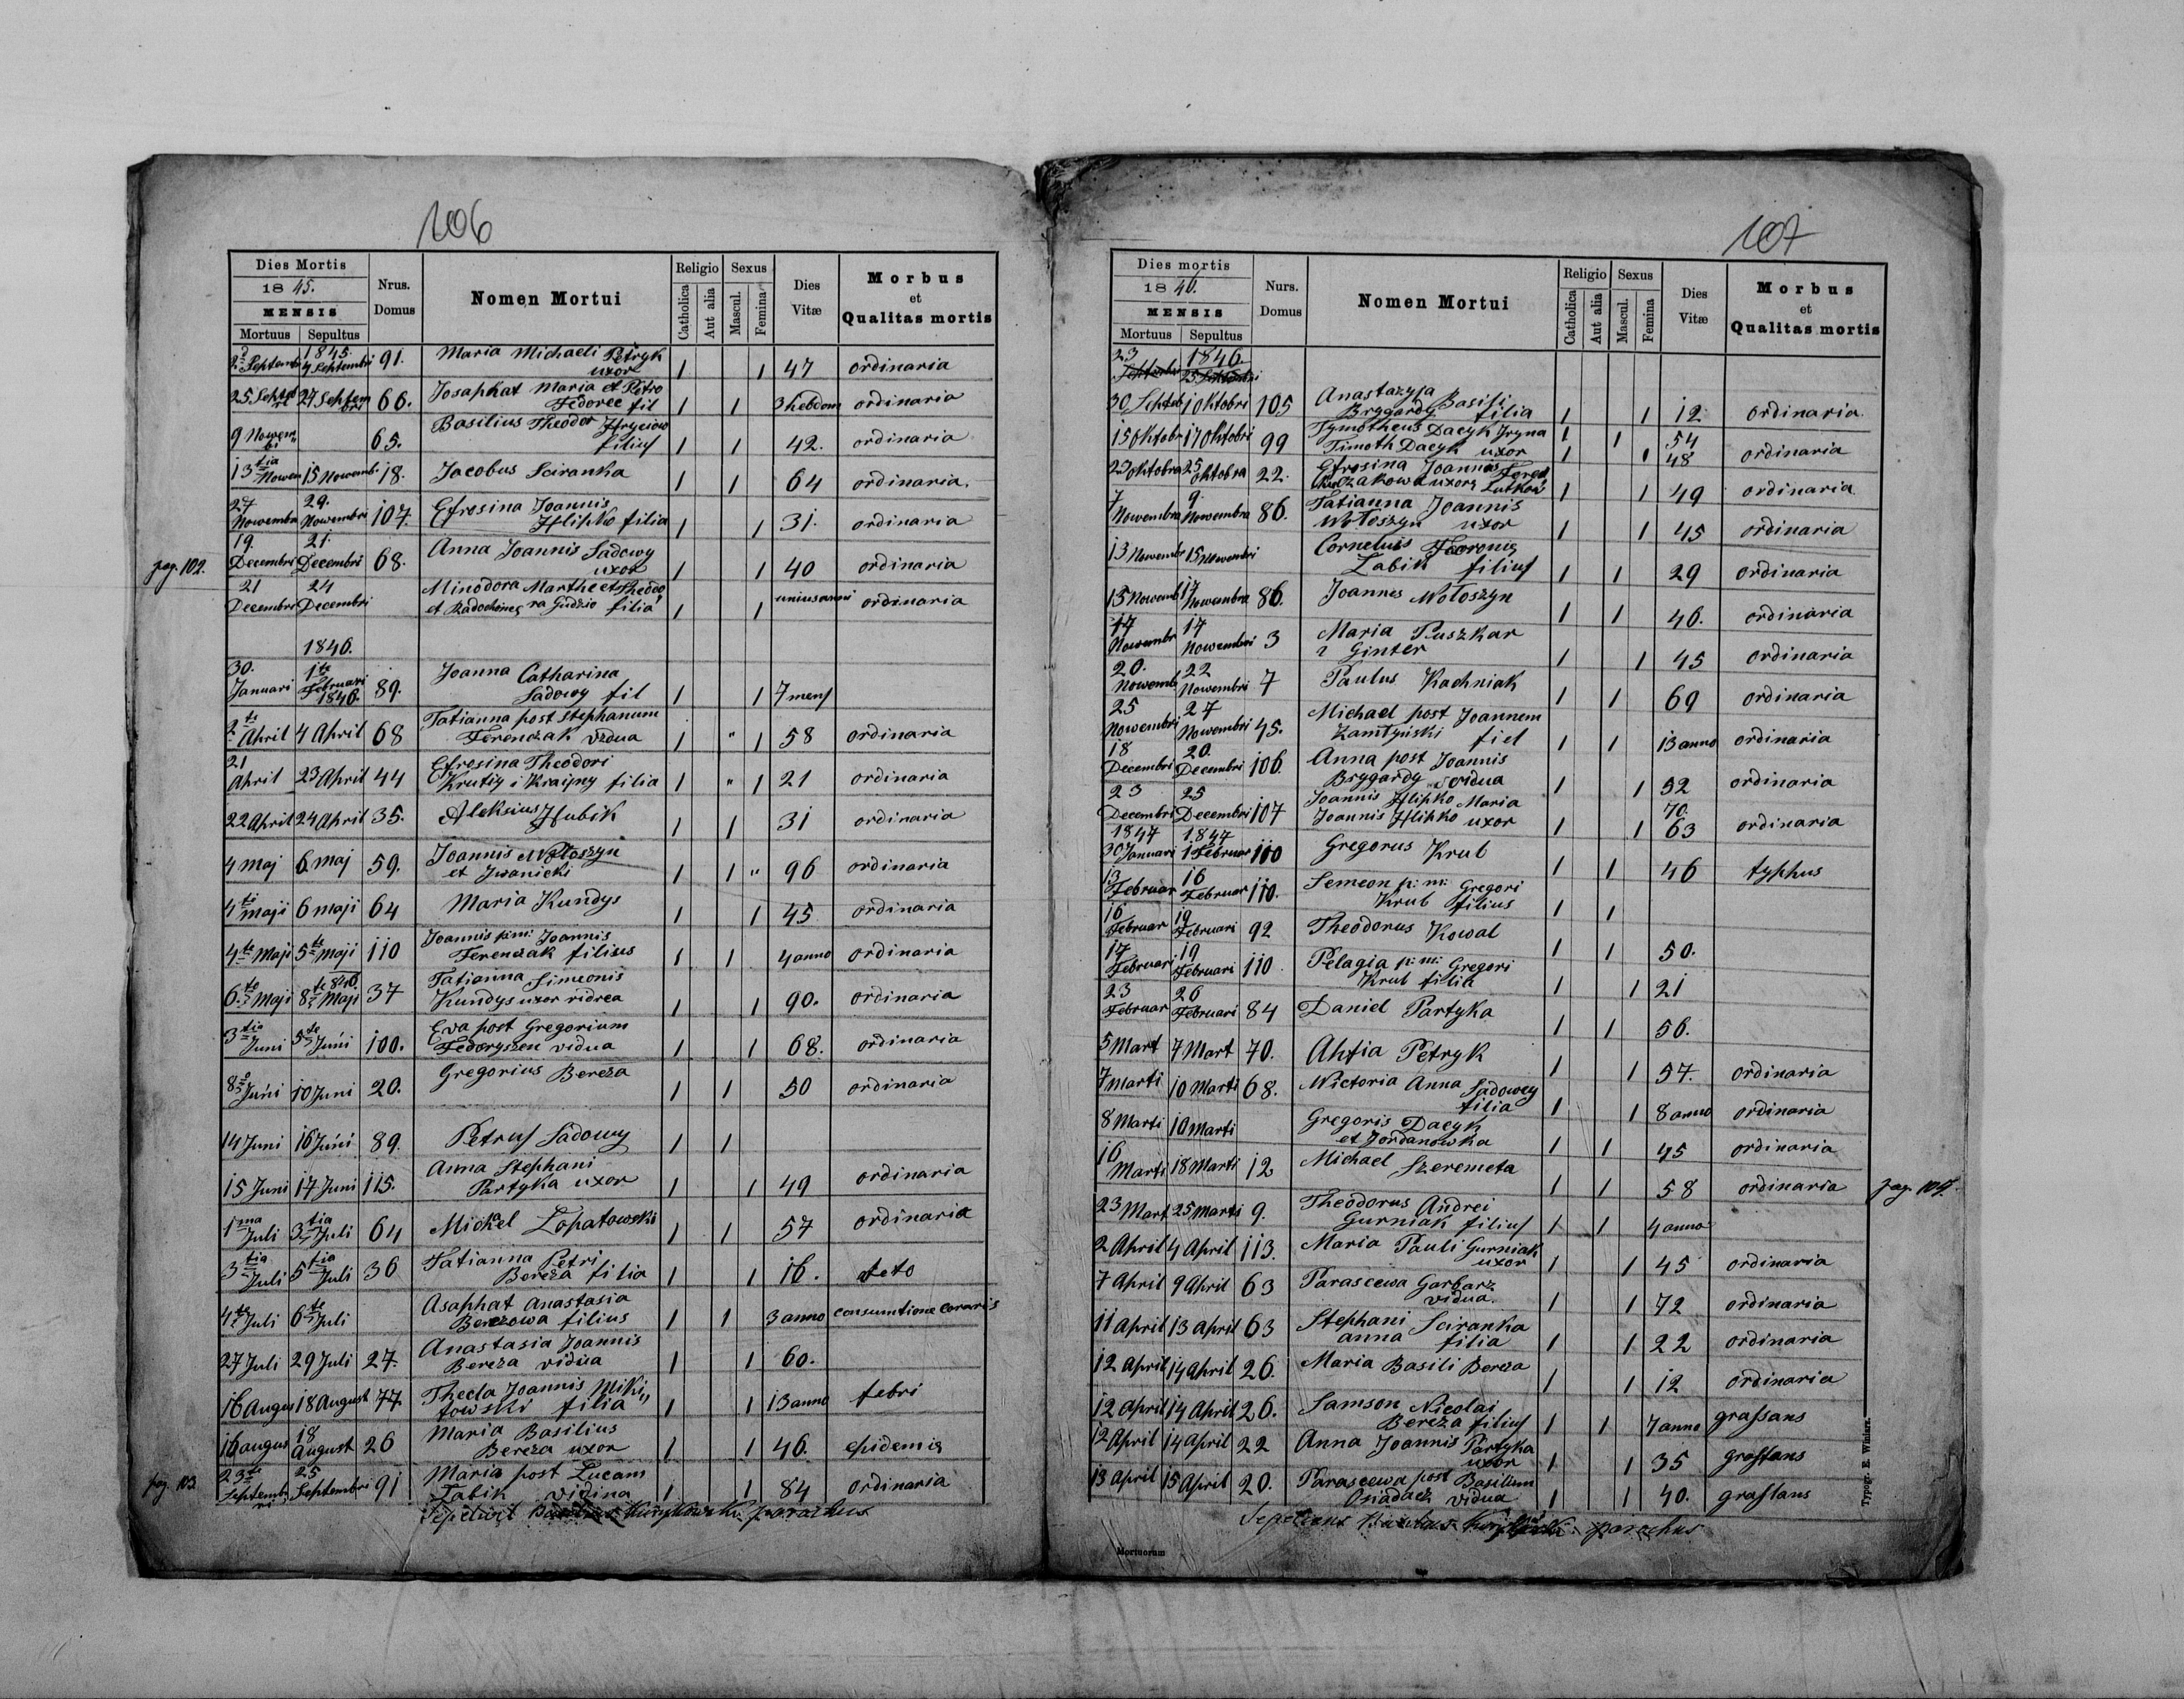 106
Dies Mortis
18 45.
MENSIS
Mortuus Sepultus
Nrus. Domus
Nomen Mortui
Religio
Catholica
Aut alia
Sexus
Mascul.
Femina
Dies Vitæ
Morbus
et
Qualitas mortis
1845.
2 Septemb 4 Septembri 91. Maria Michaeli Petryk uxor 1 1 47 ordinaria
25 Septe 27 Septembri 66. Josaphat Maria et Petro Fedorec fil 1 1 3 hebdom ordinaria
9 Nowem 65. Basilius Theodor Hryciow filius 1 1 42. ordinaria
13tia Nowem 15 Nowemb 18. Jacobus Sciranka 1 1 64 ordinaria.
27 Nowembr 29. Nowembri 107. Efrosina Joannis Hlipko filia 1 1 31. ordinaria
pag. 102.
19. Decembri 21. Decembri 68. Anna Joannis Sadowy uxor 1 1 40 ordinaria
21 Decembri 24 Decembri Minodora Marthe et Theodo
et ra Gudzio filia 1 1 unius anni ordinaria
1846.
30. Januari 1te Februari 1846. 89. Joanna Catharina Sadowy fil 1 1 7 mens
2te April 4 April 68 Tatianna post Stephanum Ferenczak vidua 1 " 1 58 ordinaria
21 April 23 April 44 Efrosina Theodori Krutiy i Kraipny filia 1 " 1 21 ordinaria
22 April 24 April 35. Aleksius Hubik 1 1 31 ordinaria
4 maj 6 maj 59. Joannis Wołoszyn et Iwanicki 1 1 " 96 ordinaria
4ti maji 6 maji 64 Maria Kundys 1 1 45 ordinaria
4te Maji 5te Maji 110 Joannis p:m: Joannis Ferenczak filius 1 1 4 anno ordinaria
6te Maji 8te Maji 846. 37 Tatianna Simeonis Kundys uxor 1 1 90. ordinaria
3tia Juni 5te Juni 100. Eva post Gregorium Fedoryszen vidua 1 1 68. ordinaria
8 Juni 10 Juni 20. Gregorius Bereza 1 1 50 ordinaria
14 Juni 16 Juni 89. Petrus Sadowy 1 1
15 Juni 17 Juni 115. Anna Stephani Partyka uxor 1 1 49 ordinaria
1ma Juli 3tia Juli 64 Michael Łopatowski 1 1 57 ordinaria
3tia Juli 5tia Juli 36 Tatianna Petri Bereza filia 1 1 16.
4te Juli 6te Juli Asaphat Anastasia Berezowa filius 1 1 3 anno consumtione
27 Juli 29 Juli 27. Anastasia Joannis Bereza vidua 1 1 60.
16 Augus 18 August 77. Thecla Joannis Miki„
towski filia 1 1 13 anno febri
16 augus 18 August 26 Maria Basilius Bereza uxor 1 1 46. epidemia
pag. 103.
23te Septemb 25 Septembri 91 Maria post Lucam Łabik vidua 1 1 84 ordinaria
Sepelivit parochus
107
Dies mortis
18 46.
MENSIS
Mortuus Sepultus
Nurs. Domus
Nomen Mortui
Religio
Catholica
Aut alia
Sexus
Mascul.
Femina
Dies Vitæ
Morbus
et
Qualitas mortis
23 1846.
30 Septeb 1 Oktobri 105 Anastazyja Basili Brygardy filia 1 1 12 ordinaria.
15 Oktobr 17 Oktobri 99 Tymotheus Dacyk Iryna 1 1 54
Timoth Dacyk uxor 1 1 48 ordinaria
23 Oktobra 25 Oktobra 22. Efrosina Joannes 1 1 49 ordinaria
7 Nowembra 9. Nowembra 86. Tatianna Joannis Wołoszyn uxor 1 1 45 ordinaria
13 Nowembr 15 Nowembri Cornelius Łabik filius 1 1 29 ordinaria
15 Nowemb 17 Nowembra 86. Joannes Wołoszyn 1 1 46. ordinaria
17 Nowembr 17 Nowembri 3 Maria Puszkar
Ginter 1 1 45 ordinaria
20. Nowemb 22 Nowembri 7 Paulus Kachniak 1 1 69 ordinaria
25 Nowembri 27 Nowembri 45. Michael post Joannem fiel 1 1 13 anno ordinaria
18 Decembri 20. Decembri 106. Anna post Joannis Brygardy vidua 1 1 52 ordinaria
23 Decembri 25 Decembri 107 Joannis Hlipko Maria 70.
Joannis Hlipko uxor 1 1 63 ordinaria
1847 1847
30 Januari 1 Februar 110 Gregorus Krub 1 1 46 typhus
13 Februar 16 Februar 110. Semeon p:m: Gregori Krub filius 1 1
16 Februar 19 Februari 92 Theodorus Kowal 1 1 50.
17 Februari 19 Februari 110 Pelagia p:m: Gregori Krub filia 1 1 21
23 Februar 26 Februari 84 Daniel Partyka 1 1 56.
5 Mart 7 Mart 70. Ahfia Petryk 1 1 57. ordinaria
7 marti 10 Marti 68. Wictoria Anna Sadowey filia 1 1 8 anno ordinaria
8 Marti 10 marti Gregoris Dacyk et Jordanowka 1 1 45 ordinaria
16 Marti 18 Marti 12 Michael Szeremeta 1 1 58 ordinaria
pag. 104.
23 Mart 25 Marti 9. Theodorus Andrei Gurniak filius 1 1 4 anno
2 April 4 April 113. Maria Pauli Gurniak uxor 1 1 45 ordinaria
7 April 9 April 63 Parascewa Garbarz vidua. 1 1 72 ordinaria
11 April 13 April 63 Stephani Sciranka anna filia 1 1 22 ordinaria
12 April 14 April 26. Maria Basili Bereza 1 1 12 ordinaria
12 April 14 April 26. Samson Nicolai Bereza filius 1 1 7 anno grassans
12 April 14 April 22 Anna Joannis Partyka uxor 1 1 35 grassans
13 April 15 April 20. Parascewa post Basilium Osadacz vidua 1 1 40. grassans
parochus
Mortuorum
Typogr. E. Winiarz.